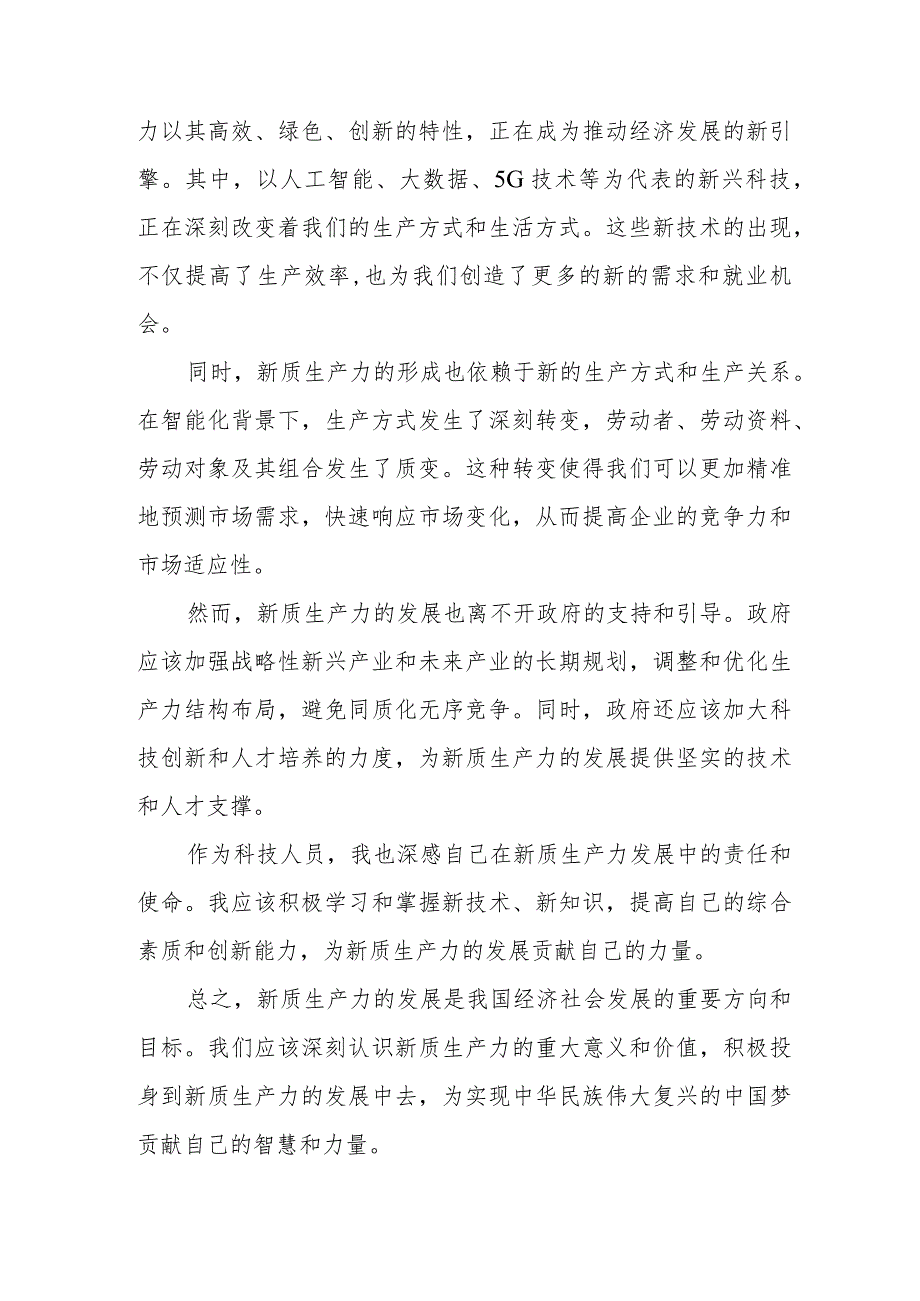 力以其高效、绿色、创新的特性，正在成为推动经济发展的新引
擎。其中，以人工智能、大数据、5G 技术等为代表的新兴科技，
正在深刻改变着我们的生产方式和生活方式。这些新技术的出现，
不仅提高了生产效率,也为我们创造了更多的新的需求和就业机
会。
同时，新质生产力的形成也依赖于新的生产方式和生产关系。
在智能化背景下，生产方式发生了深刻转变，劳动者、劳动资料、
劳动对象及其组合发生了质变。这种转变使得我们可以更加精准
地预测市场需求，快速响应市场变化，从而提高企业的竞争力和
市场适应性。
然而，新质生产力的发展也离不开政府的支持和引导。政府
应该加强战略性新兴产业和未来产业的长期规划，调整和优化生
产力结构布局，避免同质化无序竞争。同时，政府还应该加大科
技创新和人才培养的力度，为新质生产力的发展提供坚实的技术
和人才支撑。
作为科技人员，我也深感自己在新质生产力发展中的责任和
使命。我应该积极学习和掌握新技术、新知识，提高自己的综合
素质和创新能力，为新质生产力的发展贡献自己的力量。
总之，新质生产力的发展是我国经济社会发展的重要方向和
目标。我们应该深刻认识新质生产力的重大意义和价值，积极投
身到新质生产力的发展中去，为实现中华民族伟大复兴的中国梦
贡献自己的智慧和力量。